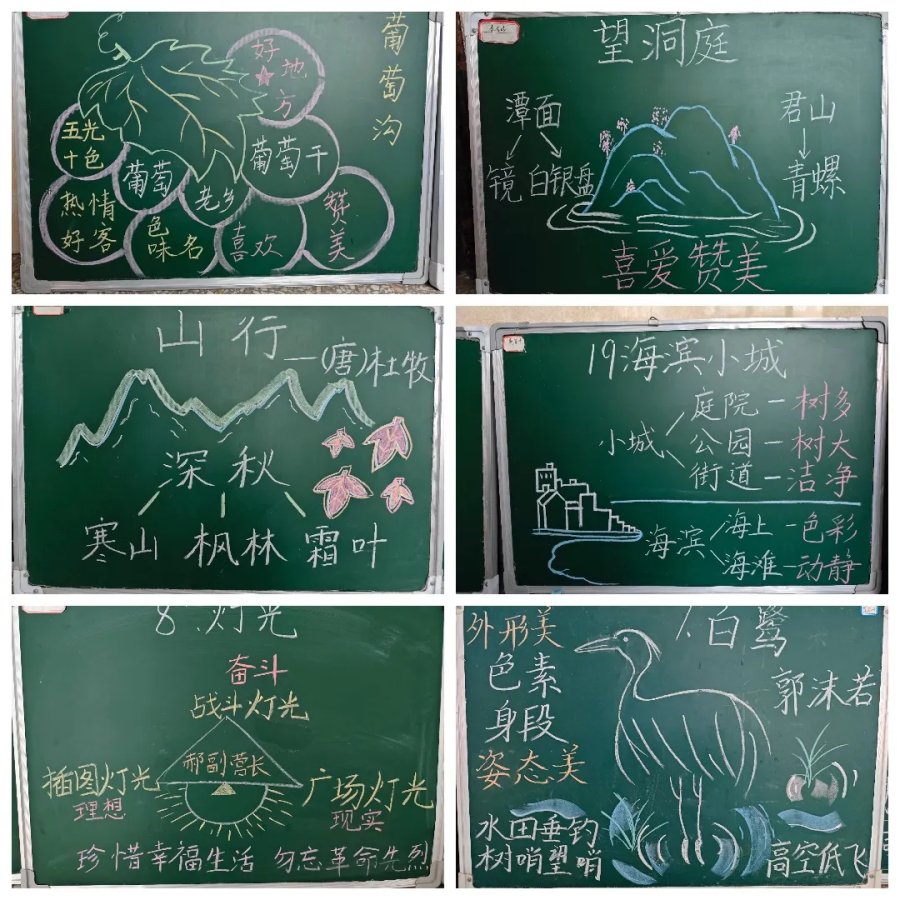 葡萄沟
好地方
五光
十色
葡萄
老乡
葡萄干
热情
好客
色
味名
喜欢
赞美
望洞庭
潭面
镜 白银盘
君山
青螺
喜爱赞美
山行
—(唐)杜牧
深秋
寒山 枫林 霜叶
19海滨小城
小城
庭院—树多
公园—树大
街道—洁净
海滨
海上—色彩
海滩—动静
8.灯光
奋斗
战斗灯光
郝副营长
插图灯光
理想
广场灯光
现实
珍惜幸福生活 勿忘革命先烈
1.白鹭
郭沫若
外形美
色素
身段
姿态美
水田垂钓
树哨望哨
高空低飞